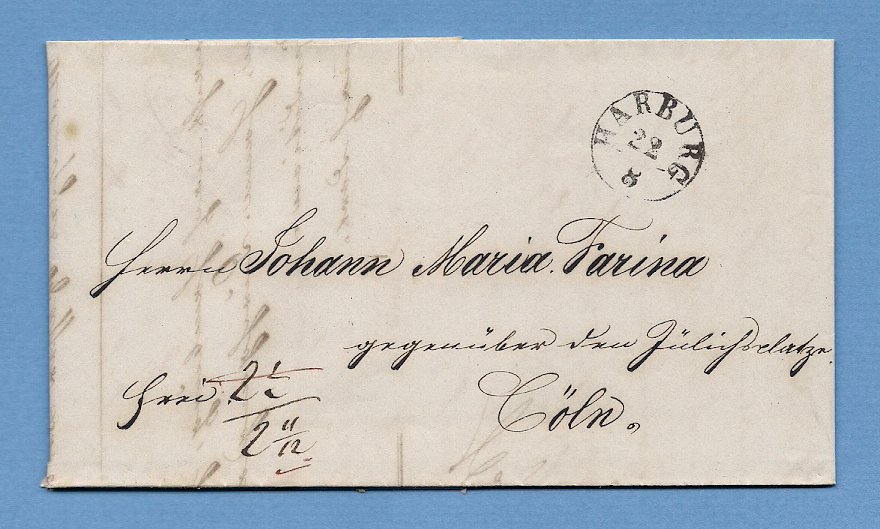 HARBURG
22
8
Herrn Johann Maria Farina
gegenüber den Jülichsplatze.
Cöln.
frei. 2 1/2
2 11/12